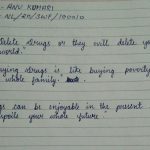 - ANU KUMARI
- NL/RN/SWF/190010
Delete drugs or they will delete you
world."
buying drugs is like buying poverty
whole family.
gs can be enjoyable in the present
spoils your whole future"